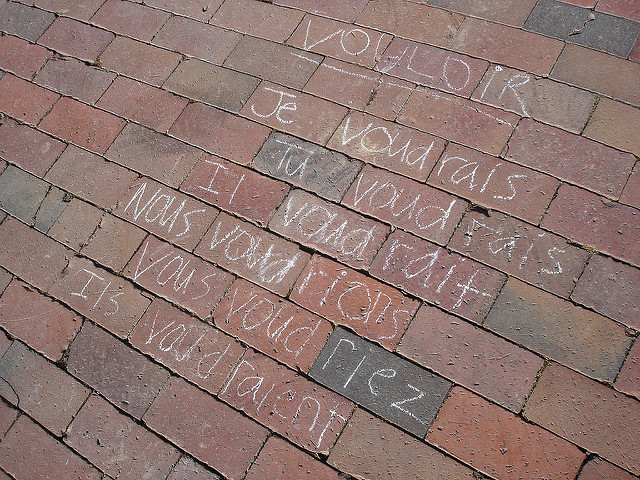 VOULOIR
Je voudrais
Tu voudrais
Il voudrait
Nous voudrions
Vous voudriez
Ils voudraient